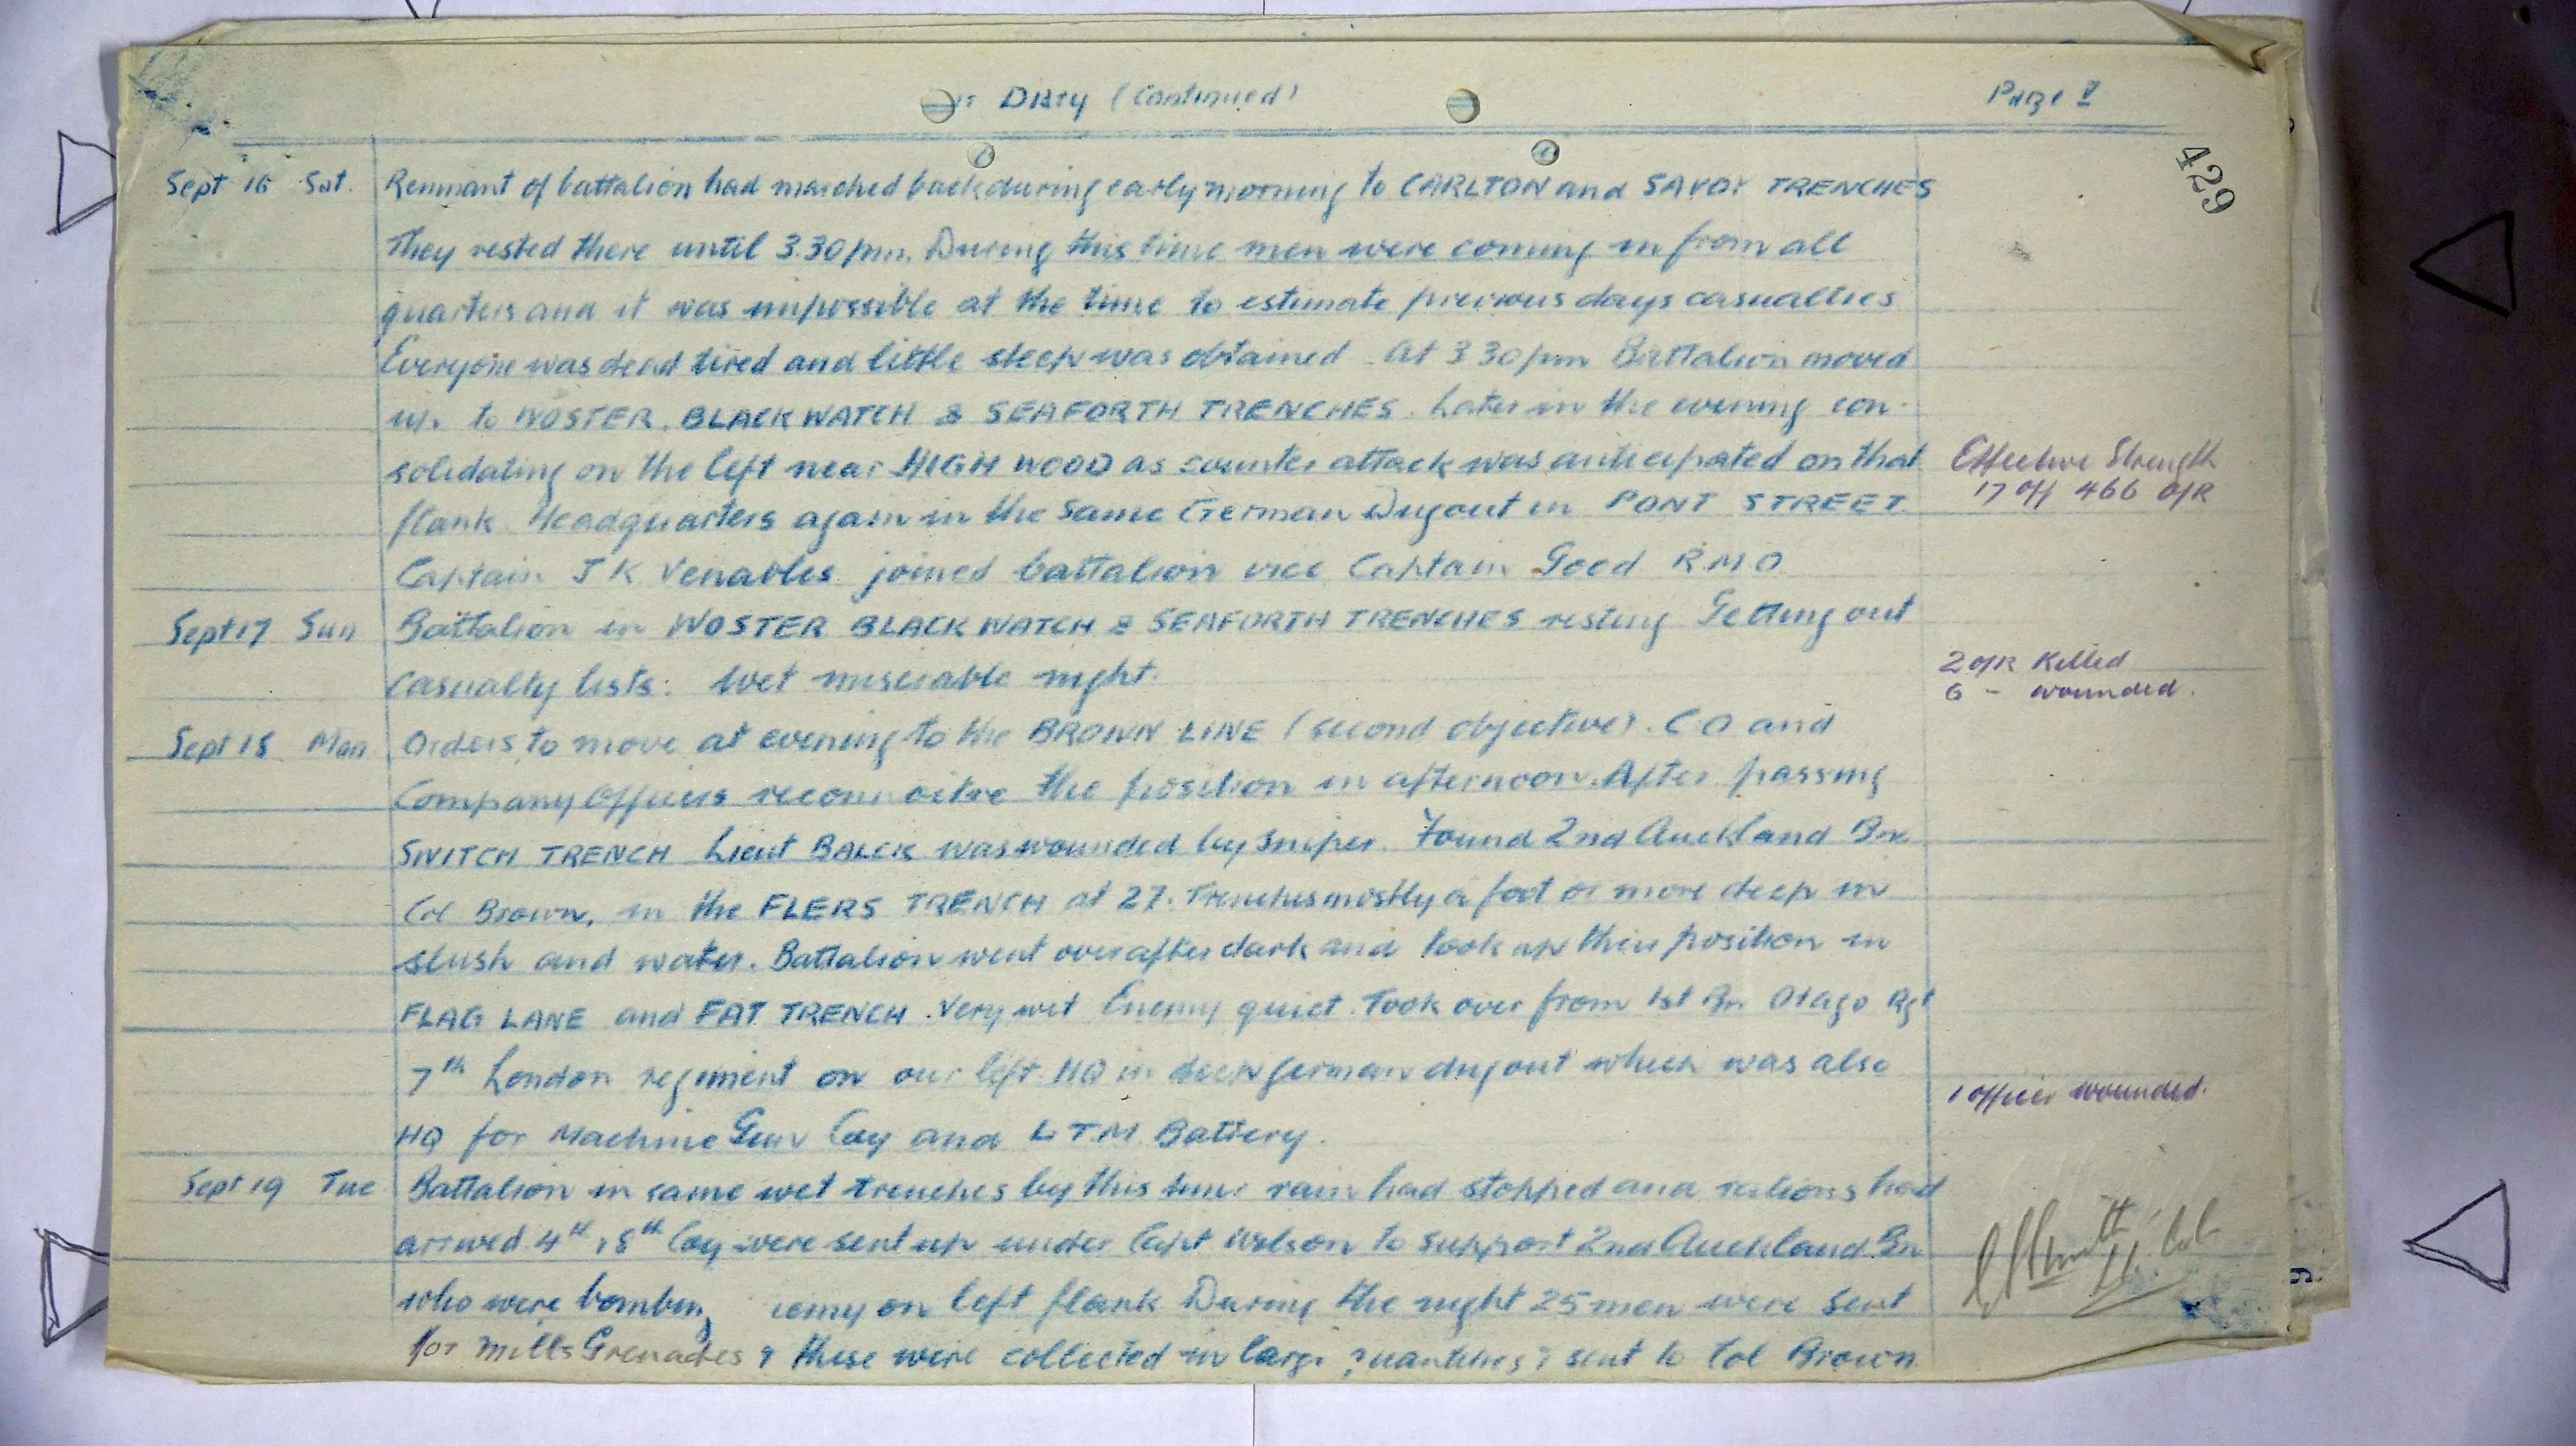 Diary (Continued)
Page V
429
Sept 16 Sat. Remnant of battalion had marched back during early morning to CARLTON and SAVOY TRENCHES
They rested there until 3.30 pm. During this time men were coming in from all
quarters and it was impossible at the time to estimate previous days casualties
Everyone was dead tired and little sleep was obtained At 3 30 pm Battalion moved
up to WOSTER, BLACK WATCH & SEAFORTH TRENCHES. Later in the evening con-
solidating on the left near HIGH WOOD as counter attack was anticipated on that
Effective Strength
17 off 466 O/R
flank. Headquarters again in the same German Dugout in PONT STREET.
Captain J K Venables joined battalion vice Captain Good R.M.O
Sept 17 Sun Battalion in WOSTER BLACK WATCH & SEAFORTH TRENCHES resting Getting out
casualty lists: Wet miserable night.
2 O/R Killed
6 - wounded.
Sept 18 Mon Orders to move at evening to the BROWN LINE (second objective). C O and
Company Officers reconnoitre the position in afternoon. After passing
SWITCH TRENCH Lieut BALCK was wounded by sniper. Found 2nd Auckland Bn
Col Brown, in the FLERS TRENCH at 27. Trenches mostly a foot or more deep in
slush and water. Battalion went over after dark and took up their position in
FLAG LANE and FAT TRENCH. Very wet Enemy quiet. Took over from 1st Bn Otago Rgt
7th London regiment on our left. HQ in deep german dugout which was also
1 officer wounded.
HQ for Machine Gun Coy and L T.M. Battery.
Sept 19 Tue Battalion in same wet trenches by this time rain had stopped and rations had
arrived. 4th, 8th Coy were sent up under Capt Wilson to support 2nd Auckland Bn
who were bombing on left flank During the night 25 men were sent
for Mills Grenades & these were collected in large quantities & sent to Col Brown